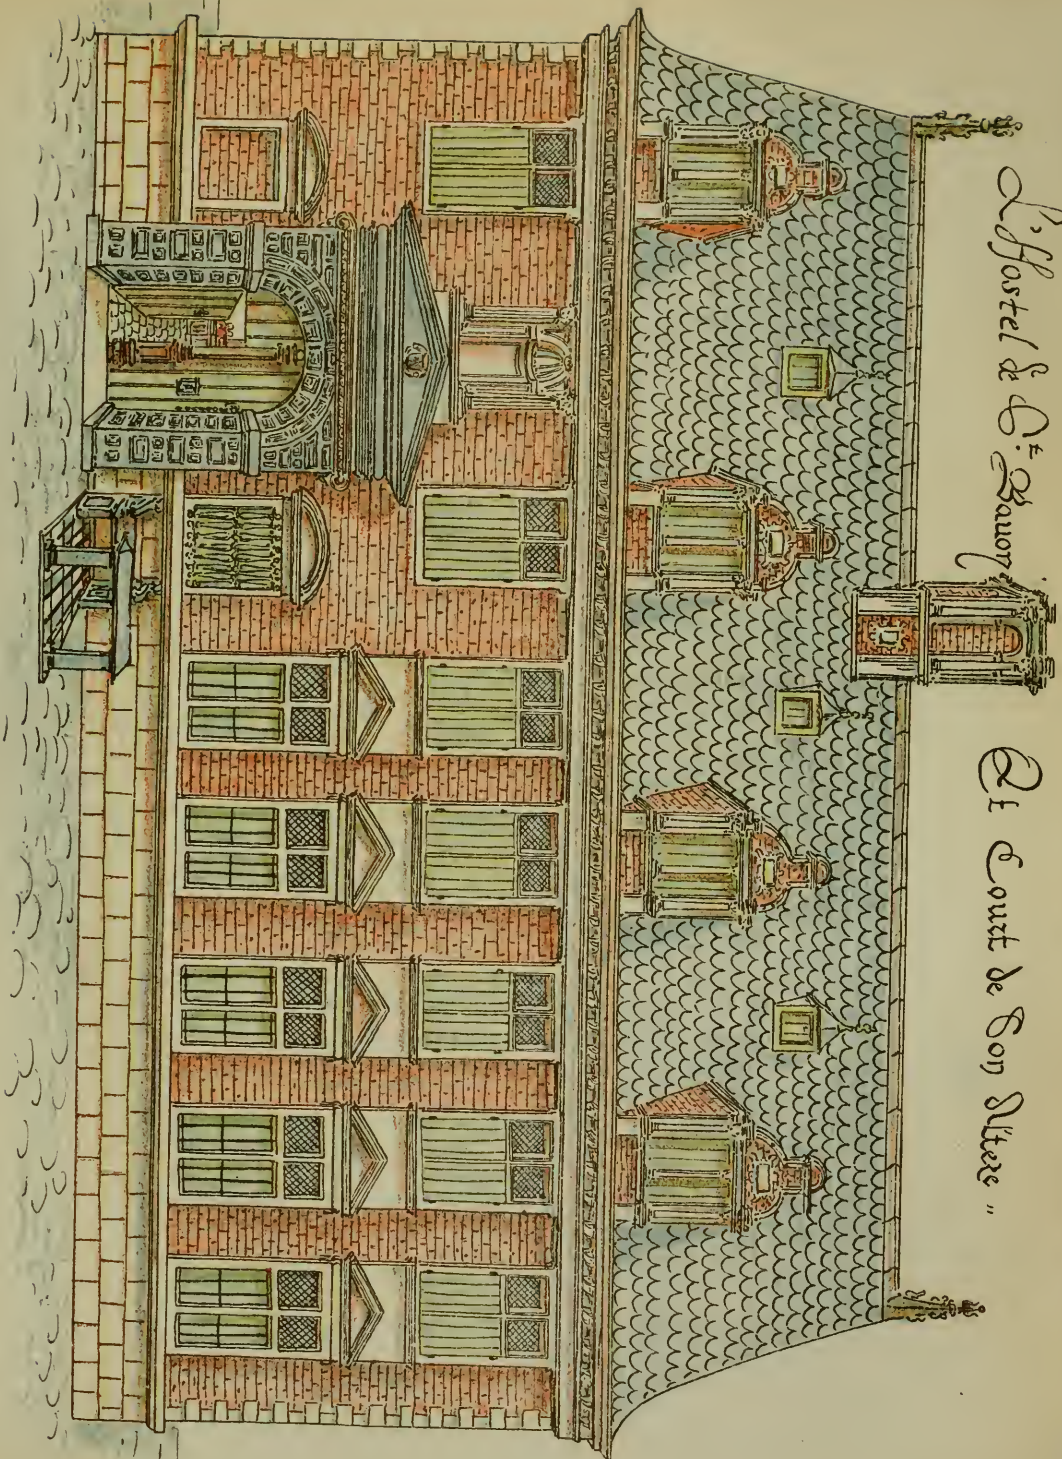 L'hostel de S.t Bauon Et Court de Son Alteze